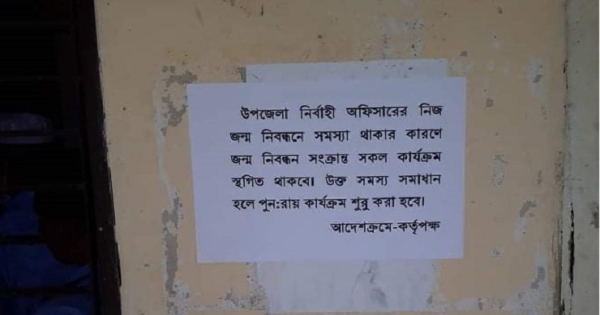 উপজেলা নির্বাহী অফিসারের নিজ
জন্ম নিবন্ধনে সমস্যা থাকার কারণে
জন্ম নিবন্ধন সংক্রান্ত সকল কার্যক্রম
স্থগিত থাকবে। উক্ত সমস্য সমাধান
হলে পুন:রায় কার্যক্রম শুরু করা হবে।
আদেশক্রমে-কর্তৃপক্ষ